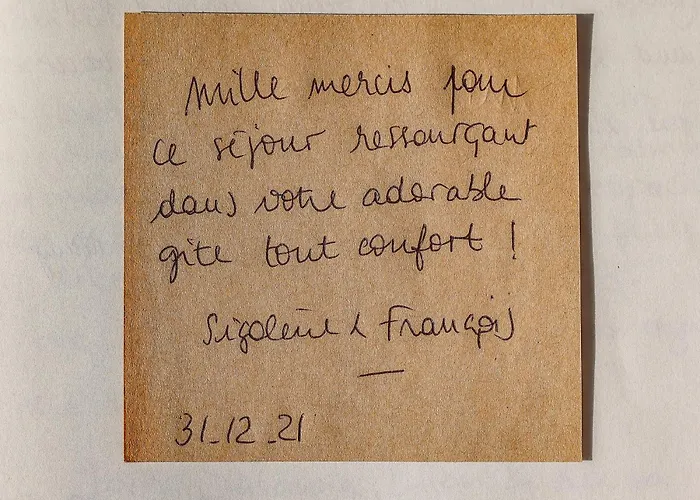 Mille mercis pour
ce séjour ressourçant
dans votre adorable
gîte tout confort !
Sigolène & François
31_12_21